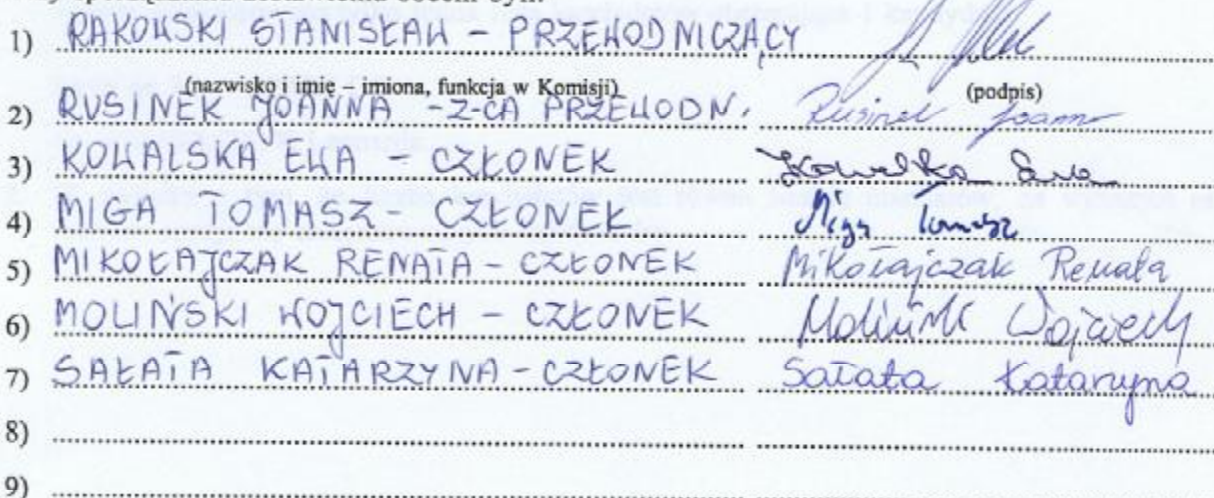 1) RAKOWSKI STANISŁAW – PRZEWODNICZĄCY
(nazwisko i imię – imiona, funkcja w Komisji) (podpis)
2) RUSINEK JOANNA - Z-CA PRZEWODN. Rusinek Joann
3) KOWALSKA EWA – CZŁONEK Kowalska Ewa
4) MIGA TOMASZ - CZŁONEK Miga Tomasz
5) MIKOŁAJCZAK RENATA - CZŁONEK Mikołajczak Renata
6) MOLIŃSKI WOJCIECH – CZŁONEK Moliński Wojciech
7) SAŁATA KATARZYNA - CZŁONEK Sałata Katarzyna
8)
9)